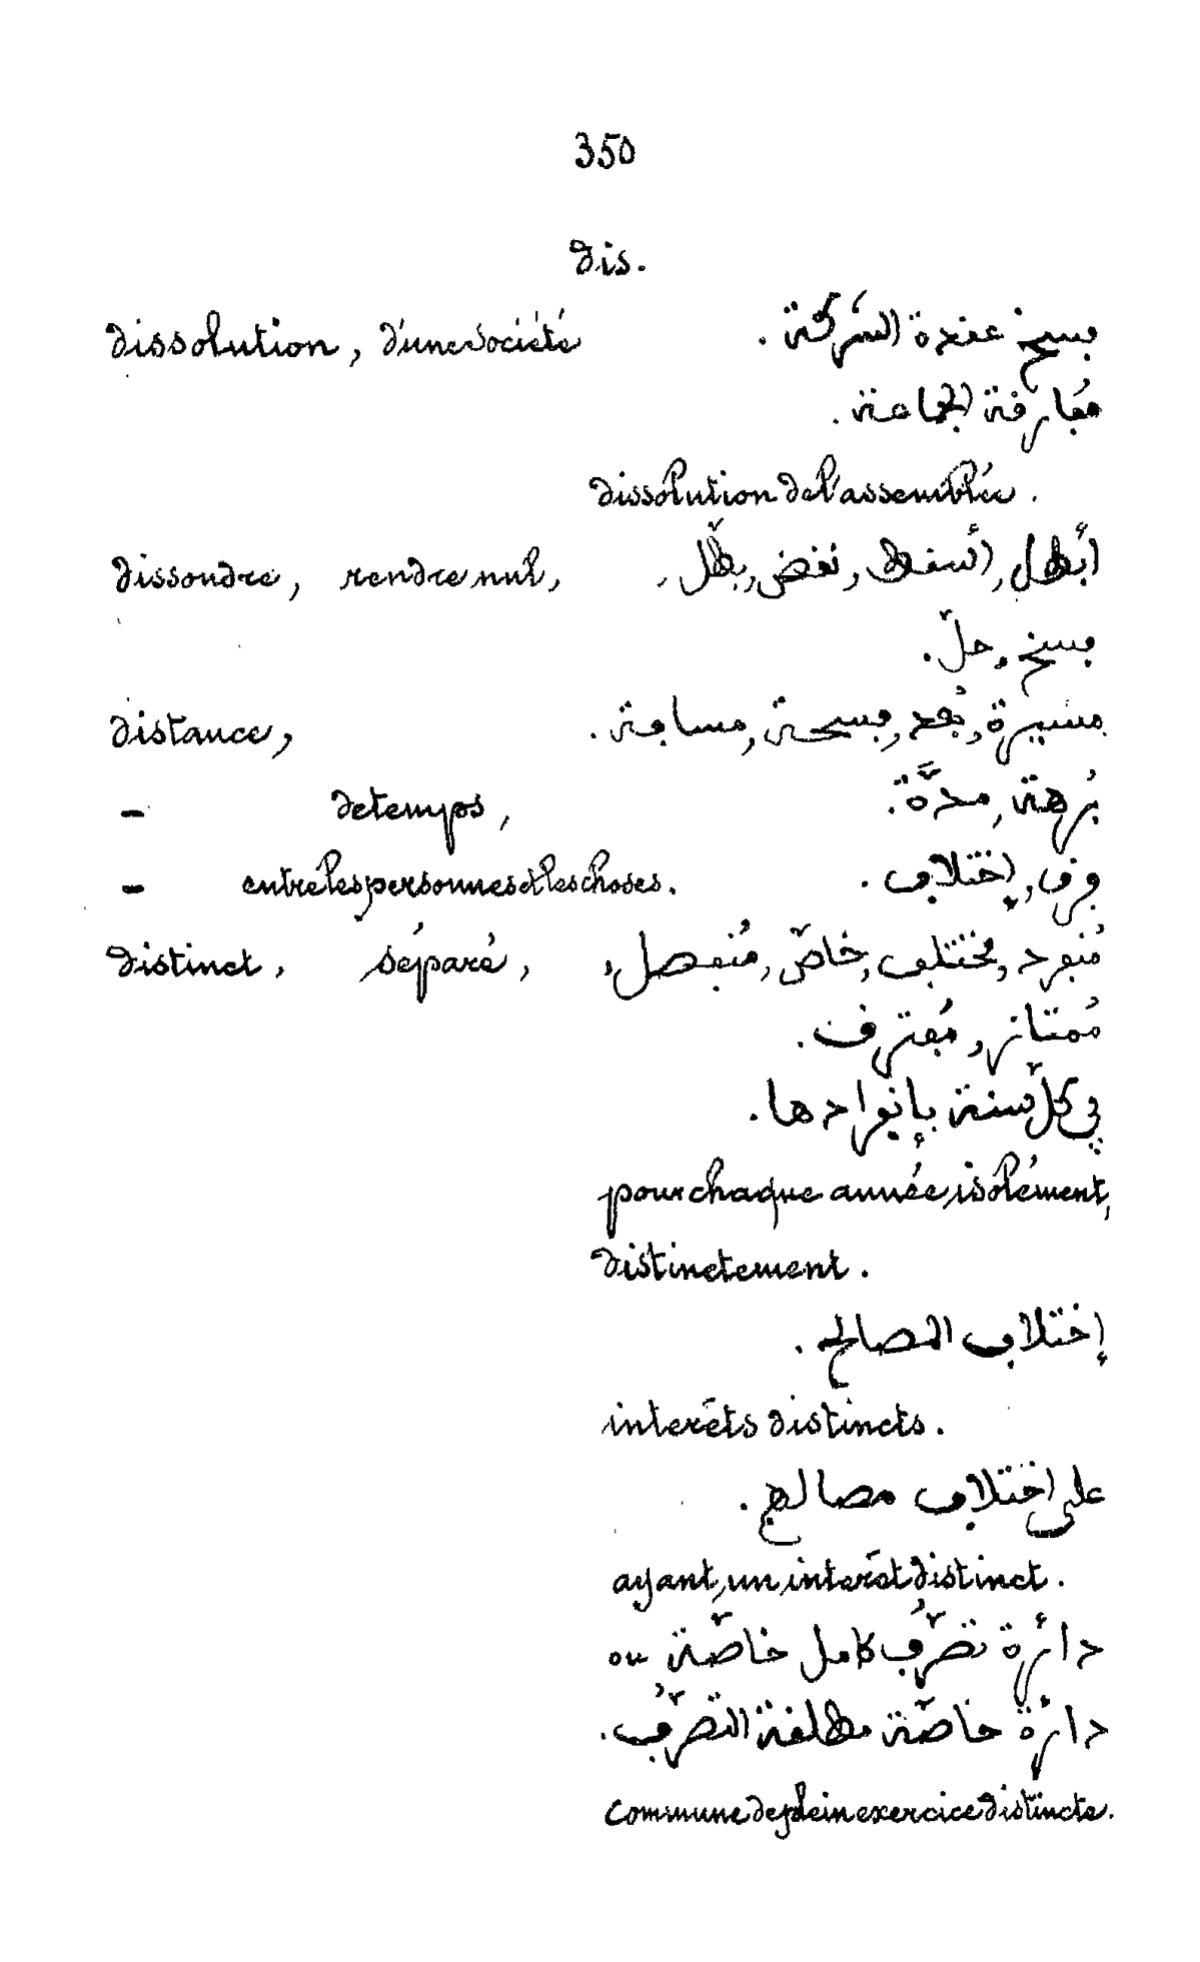 350
dis.
dissolution, d'une société فسخ عقدة الشركة .
مُفارقة الجماعة .
dissolution de l'assemblée .
dissoudre, rendre nul, أبطل, أسقط, نقض, بطّل,
فسخ, حلّ .
distance, مسيرة, بُعد, فسحة, مسافة .
- de temps, بُرهة, مدَّة .
- entre les personnes et les choses. فرق, إختلاف .
distinct, séparé, مُنفرد, مختلف, خاصّ, مُنفصل,
مُمتاز, مُفترق .
في كلّ سنة بإنفرادها .
pour chaque année, isolément,
distinctement .
إختلاف المصالح .
interêts distincts .
على اختلاف مصالح .
ayant un interêt distinct .
دائرة تصرُّف كامل خاصّة ou
دائرة خاصّة مطلقة التصرُّف .
commune de plein exercice distincte.